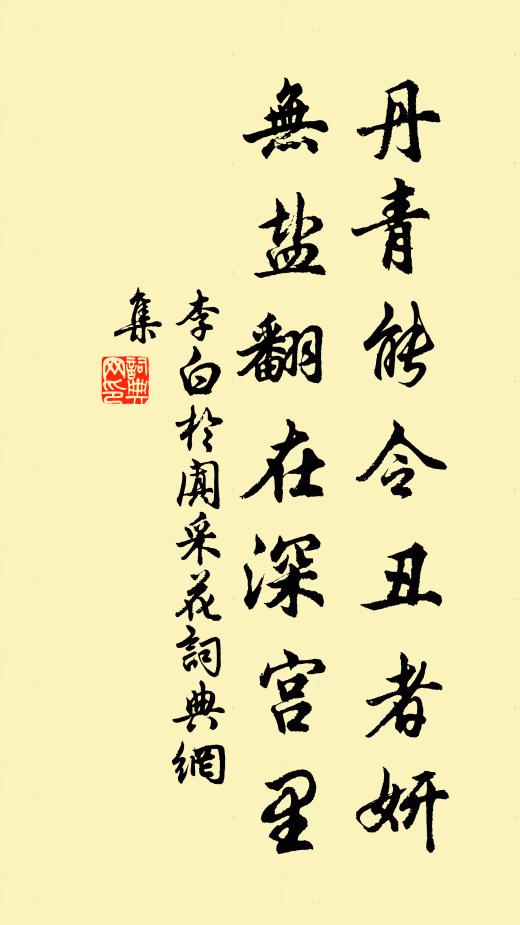 丹青能令丑者妍
無盐翻在深宫里
李白於闐采花詞典網
集
詞典
网印